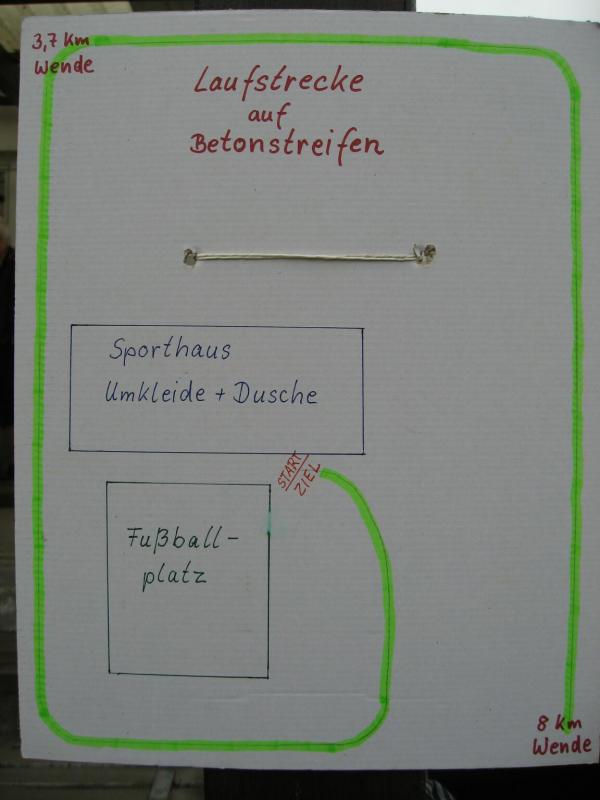 3,7 Km
Wende
Laufstrecke
auf
Betonstreifen
Sporthaus
Umkleide + Dusche
START
ZIEL
Fußball-
platz
8 Km
Wende